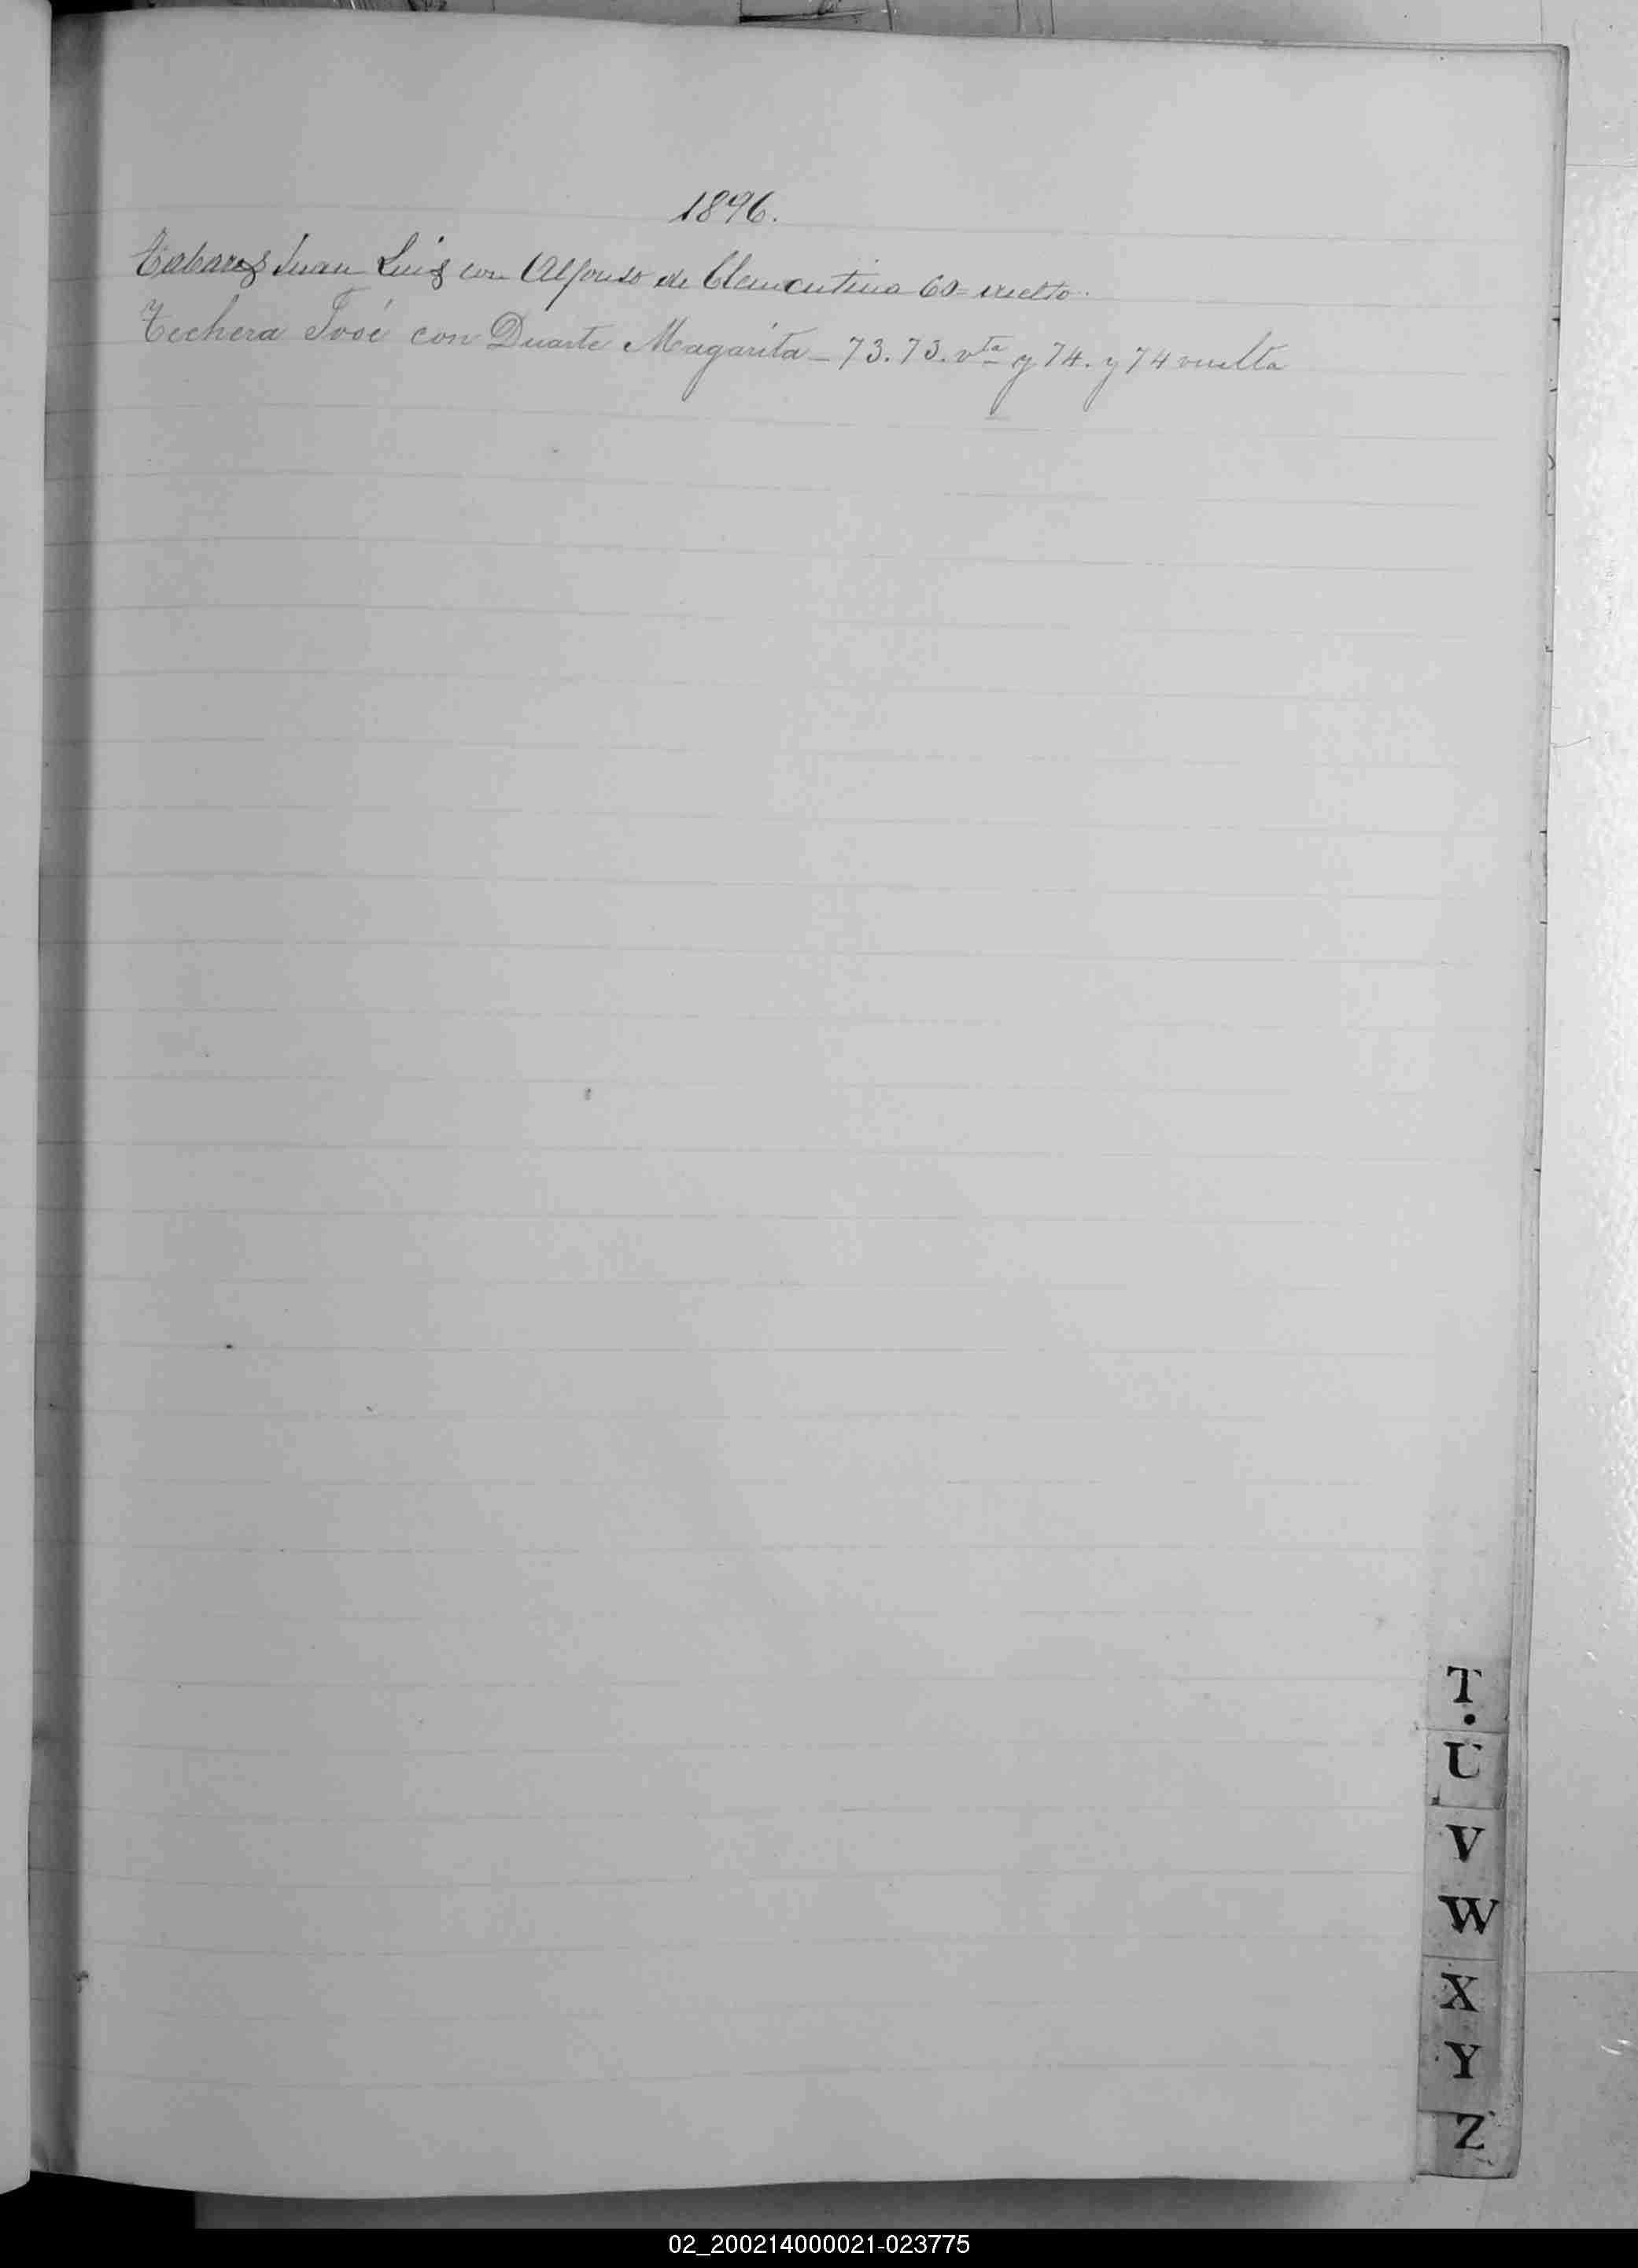 1896.
Tabares Juan Luis con Alfonso de Clementina 60 = vuelto.
Techera José con Duarte Magarita - 73. 73. vta y 74. y 74 vuelta
T.
U
V
W
X
Y
Z
02_200214000021-023775